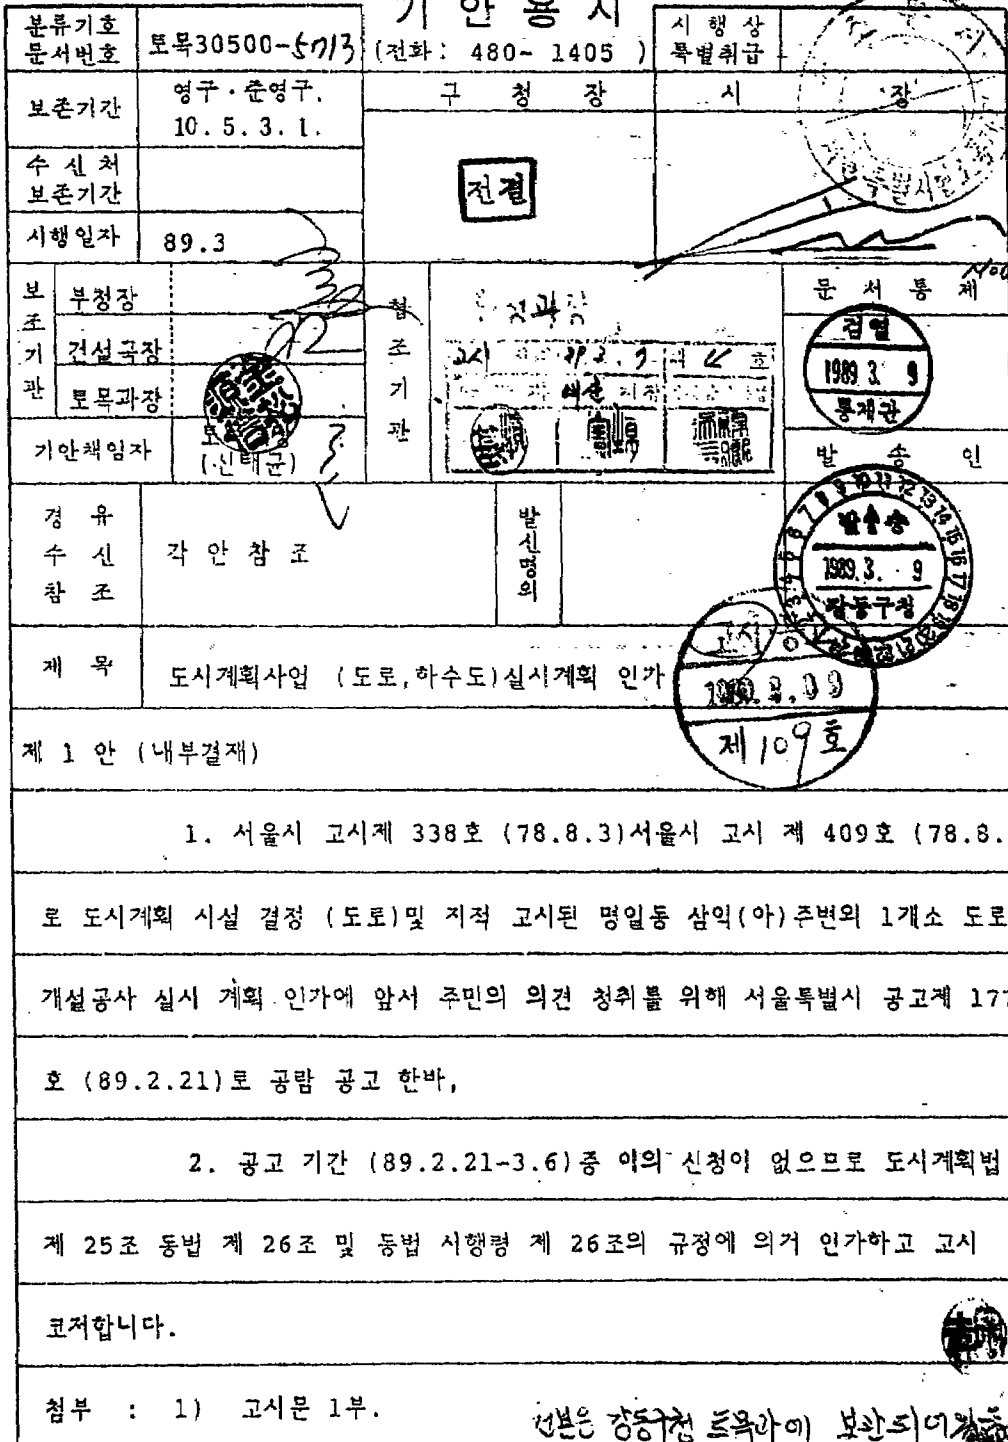 기 안 용 지
분류기호
문서번호
토목30500-5713
(전화: 480- 1405 )
시 행 상
특별취급
보존기간
영구·준영구.
10. 5. 3. 1.
구 청 장
시 장
수 신 처
보존기간
전결
시행일자
89.3
보조기관
부청장
건설국장
토목과장
협조기관
문 서 통 제
검열
1989. 3. 9
통제관
기안책임자
(신태균)
발 송 인
발송
1989. 3. 9
강동구청
경 유
수 신
참 조
각 안 참 조
발신명의
제 목
도시계획사업 (도로,하수도)실시계획 인가
고시
1989. 3. 09
제 109 호
제 1 안 (내부결재)
1. 서울시 고시제 338호 (78.8.3)서울시 고시 제 409호 (78.8.
로 도시계획 시설 결정 (도로)및 지적 고시된 명일동 삼익(아)주변외 1개소 도로
개설공사 실시 계획 인가에 앞서 주민의 의견 청취를 위해 서울특별시 공고제 177
호 (89.2.21)로 공람 공고 한바,
2. 공고 기간 (89.2.21-3.6)중 이의 신청이 없으므로 도시계획법
제 25조 동법 제 26조 및 동법 시행령 제 26조의 규정에 의거 인가하고 고시
코저합니다.
첨부 : 1) 고시문 1부.
강동구청 토목과에 보관되어